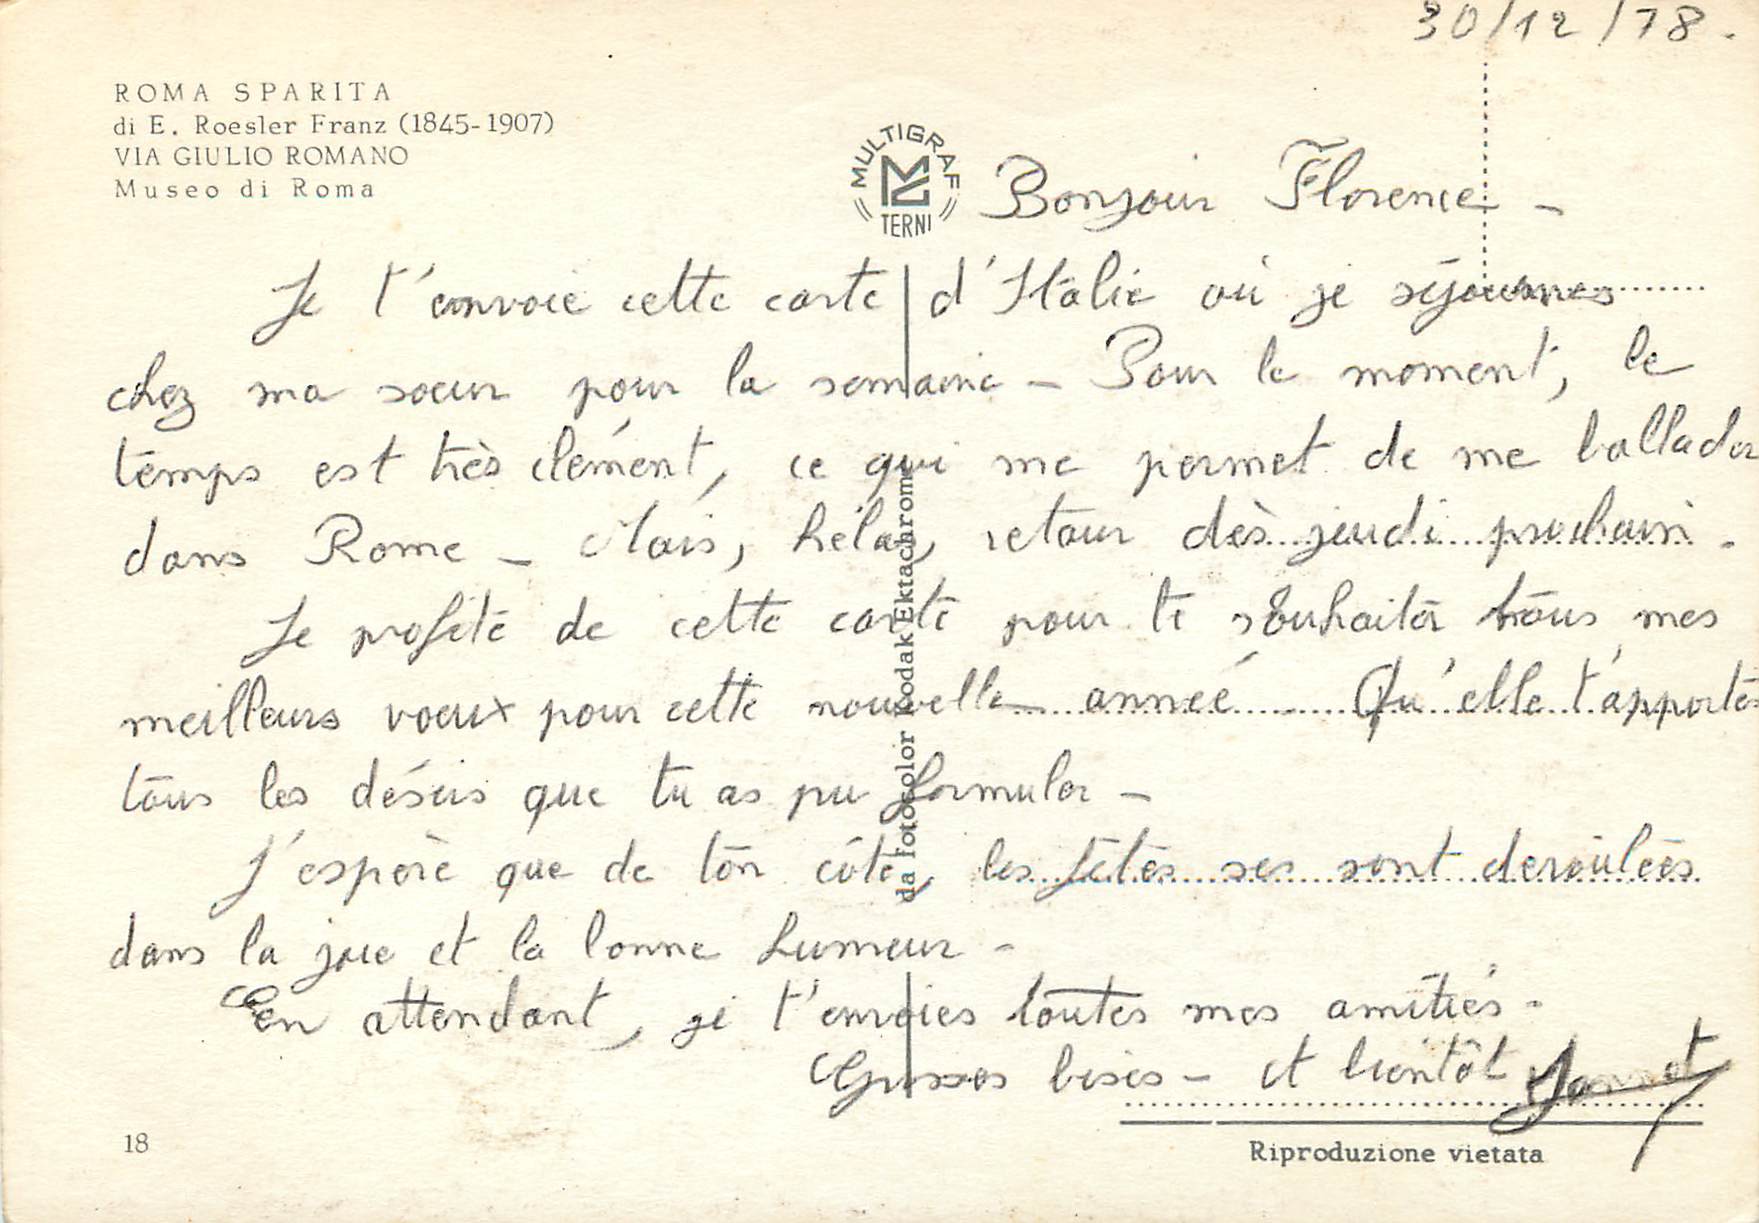 30/12/78.
ROMA SPARITA
di E. Roesler Franz (1845-1907)
VIA GIULIO ROMANO
Museo di Roma
MULTIGRAF
TERNI
Bonjour Florence -
Je t'envoie cette carte d'Italie où je séjournes
chez ma soeur pour la semaine - Pour le moment, le
temps est très clément, ce qui me permet de me ballader
dans Rome - Mais, hélas, retour dès jeudi prochain -
Je profite de cette carte pour te souhaiter tous mes
meilleurs voeux pour cette nouvelle année - Qu'elle t'apportes
tous les désirs que tu as pu formuler -
J'espère que de ton côté, les fêtes ses sont deroulées
dans la joie et la bonne humeur -
En attendant, je t'envoies toutes mes amitiés -
Grosses bises - et bientôt
da fotocolor Kodak Ektachrome
18
Riproduzione vietata